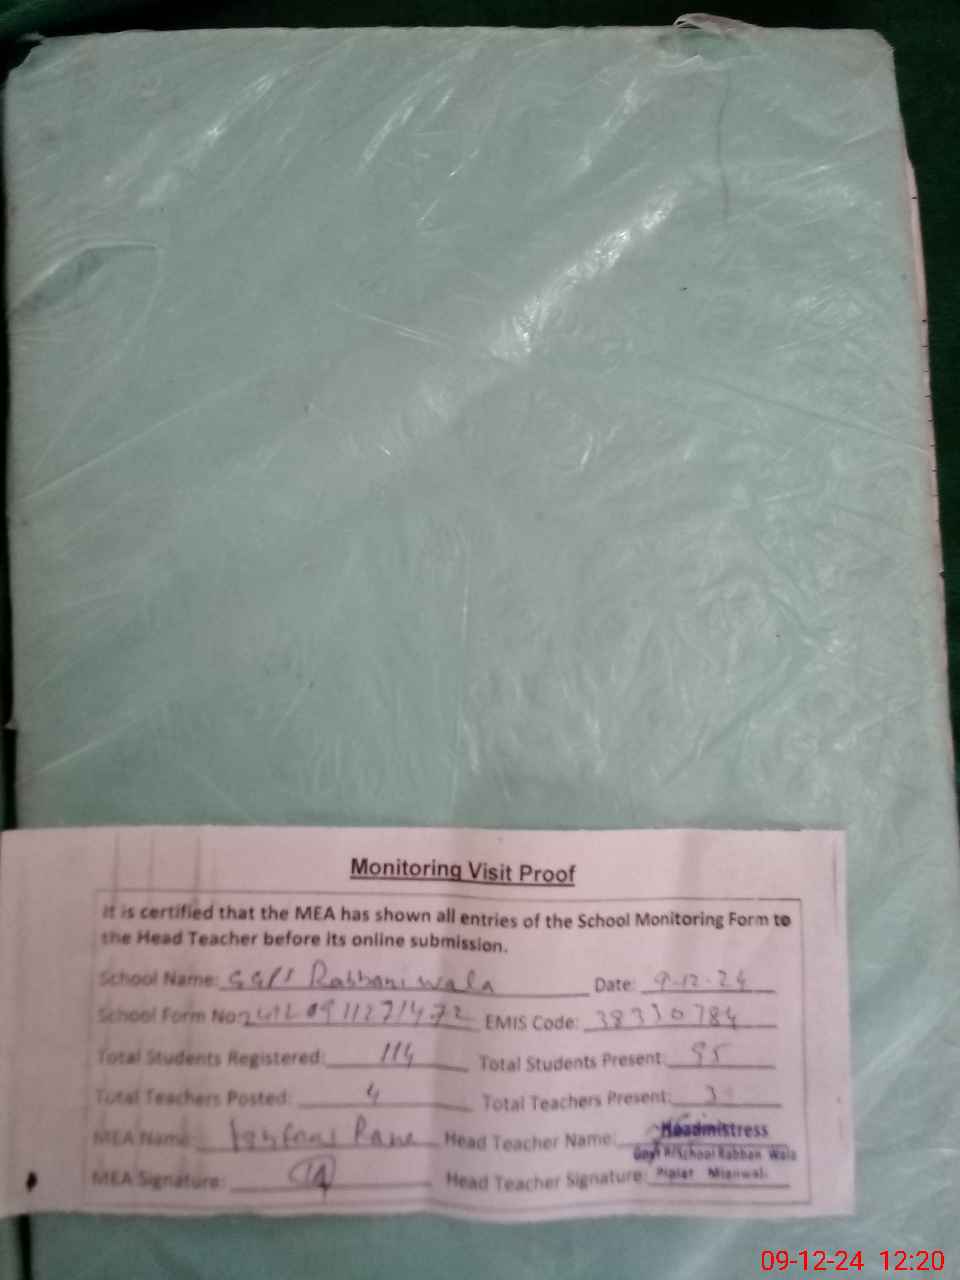 Monitoring Visit Proof
It is certified that the MEA has shown all entries of the School Monitoring Form to
the Head Teacher before its online submission.
School Name: Rabbani wala Date: 9-12-24
School Form No: EMIS Code: 38330784
Total Students Registered: 114 Total Students Present: 95
Total Teachers Posted: 4 Total Teachers Present: 3
MEA Name: Head Teacher Name: Headmistress
Govt P/School Rabban Wala
MEA Signature: Head Teacher Signature: Piplan Mianwali
09-12-24 12:20